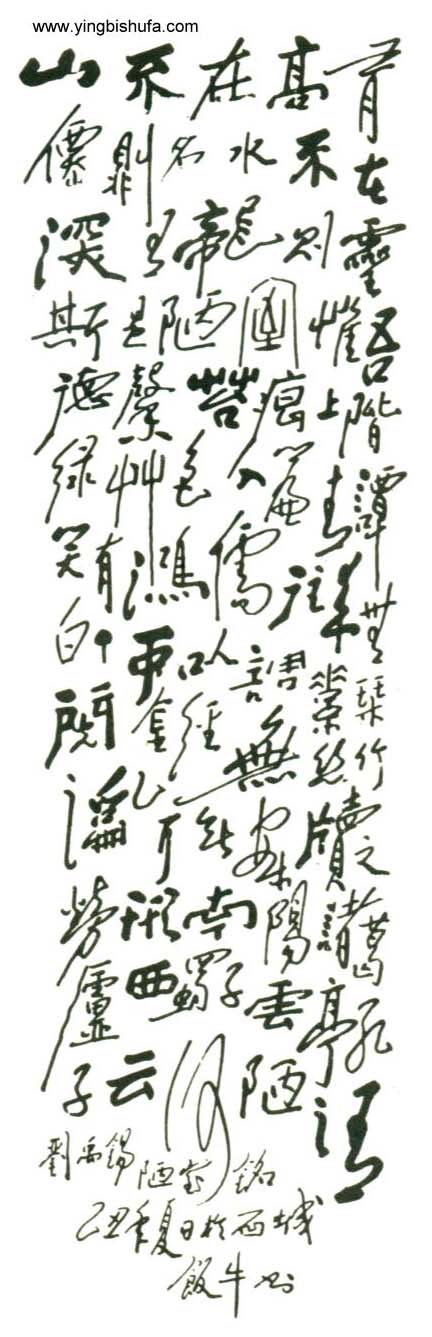 www.yingbishufa.com
山不在高有
僊則名水不在
深有龍則靈
斯是陋室惟吾
德馨苔痕上階
綠艸色入簾青譚
笑有鴻儒往來無
白丁可以調素琴
閱金經無絲竹
亂耳無案牘之
勞形南陽諸葛
廬西蜀子雲亭孔
子云何陋有
劉禹錫陋室銘
己丑年夏日於西城
飯牛